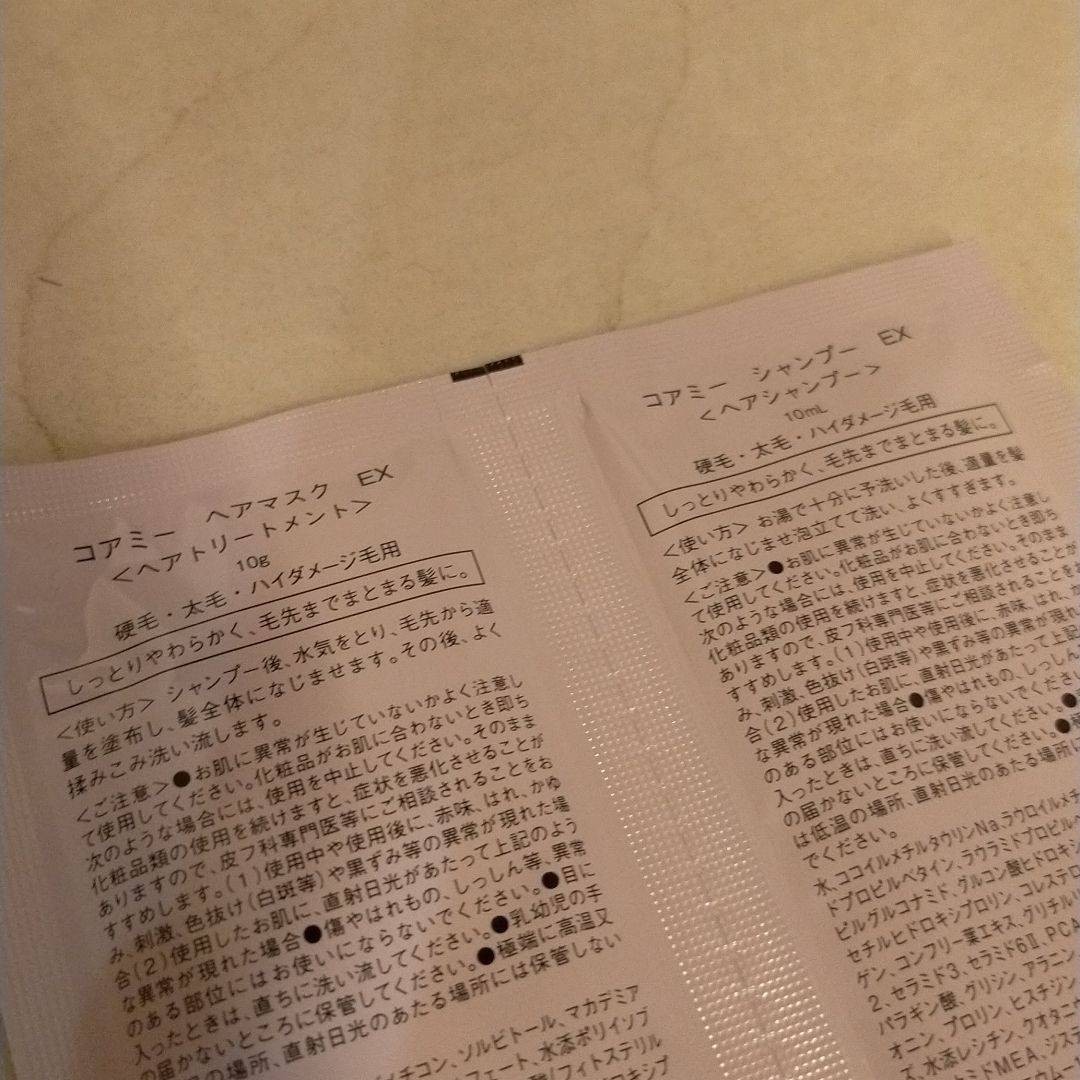 コアミー ヘアマスク EX
＜ヘアトリートメント＞
10g
硬毛・太毛・ハイダメージ毛用
しっとりやわらかく、毛先までまとまる髪に。
＜使い方＞ シャンプー後、水気をとり、毛先から適
量を塗布し、髪全体になじませます。その後、よく
揉みこみ洗い流します。
＜ご注意＞●お肌に異常が生じていないかよく注意し
て使用してください。化粧品がお肌に合わないとき即ち
次のような場合には、使用を中止してください。そのまま
化粧品類の使用を続けますと、症状を悪化させることが
ありますので、皮フ科専門医等にご相談されることをお
すすめします。(1)使用中や使用後に、赤味、はれ、かゆ
み、刺激、色抜け(白斑等)や黒ずみ等の異常が現れた場
合(2)使用したお肌に、直射日光があたって上記のよう
な異常が現れた場合●傷やはれもの、しっしん等、異常
のある部位にはお使いにならないでください。●目に
入ったときは、直ちに洗い流してください。●乳幼児の手
の届かないところに保管してください。●極端に高温又
の場所、直射日光のあたる場所には保管しない
チコン、ソルビトール、マカデミア
フェート、水添ポリイソブ
フィトステリル
コアミー シャンプー EX
＜ヘアシャンプー＞
10mL
硬毛・太毛・ハイダメージ毛用
しっとりやわらかく、毛先までまとまる髪に。
＜使い方＞ お湯で十分に予洗いした後、適量を髪
全体になじませ泡立てて洗い、よくすすぎます。
＜ご注意＞●お肌に異常が生じていないかよく注意し
て使用してください。化粧品がお肌に合わないとき即ち
次のような場合には、使用を中止してください。そのまま
化粧品類の使用を続けますと、症状を悪化させることが
ありますので、皮フ科専門医等にご相談されることをお
すすめします。(1)使用中や使用後に、赤味、はれ、か
み、刺激、色抜け(白斑等)や黒ずみ等の異常が現れ
合(2)使用したお肌に、直射日光があたって上記
な異常が現れた場合●傷やはれもの、しっしん
のある部位にはお使いにならないでください。●
入ったときは、直ちに洗い流してください。●
の届かないところに保管してください。●
は低温の場所、直射日光のあたる場所に
でください。
水、ココイルメチルタウリンNa、ラウロイルメチ
ドプロピルベタイン、ラウラミドプロピルベ
ピルグルコナミド、グルコン酸ヒドロキシ
セチルヒドロキシプロリン、コレステロ
ゲン、コンフリー葉エキス、グリチルリ
2、セラミド3、セラミド6Ⅱ、PCA
パラギン酸、グリシン、アラニン、
オニン、プロリン、ヒスチジン
ズ、水添レシチン、クオタニウ
ミドMEA、ジステ